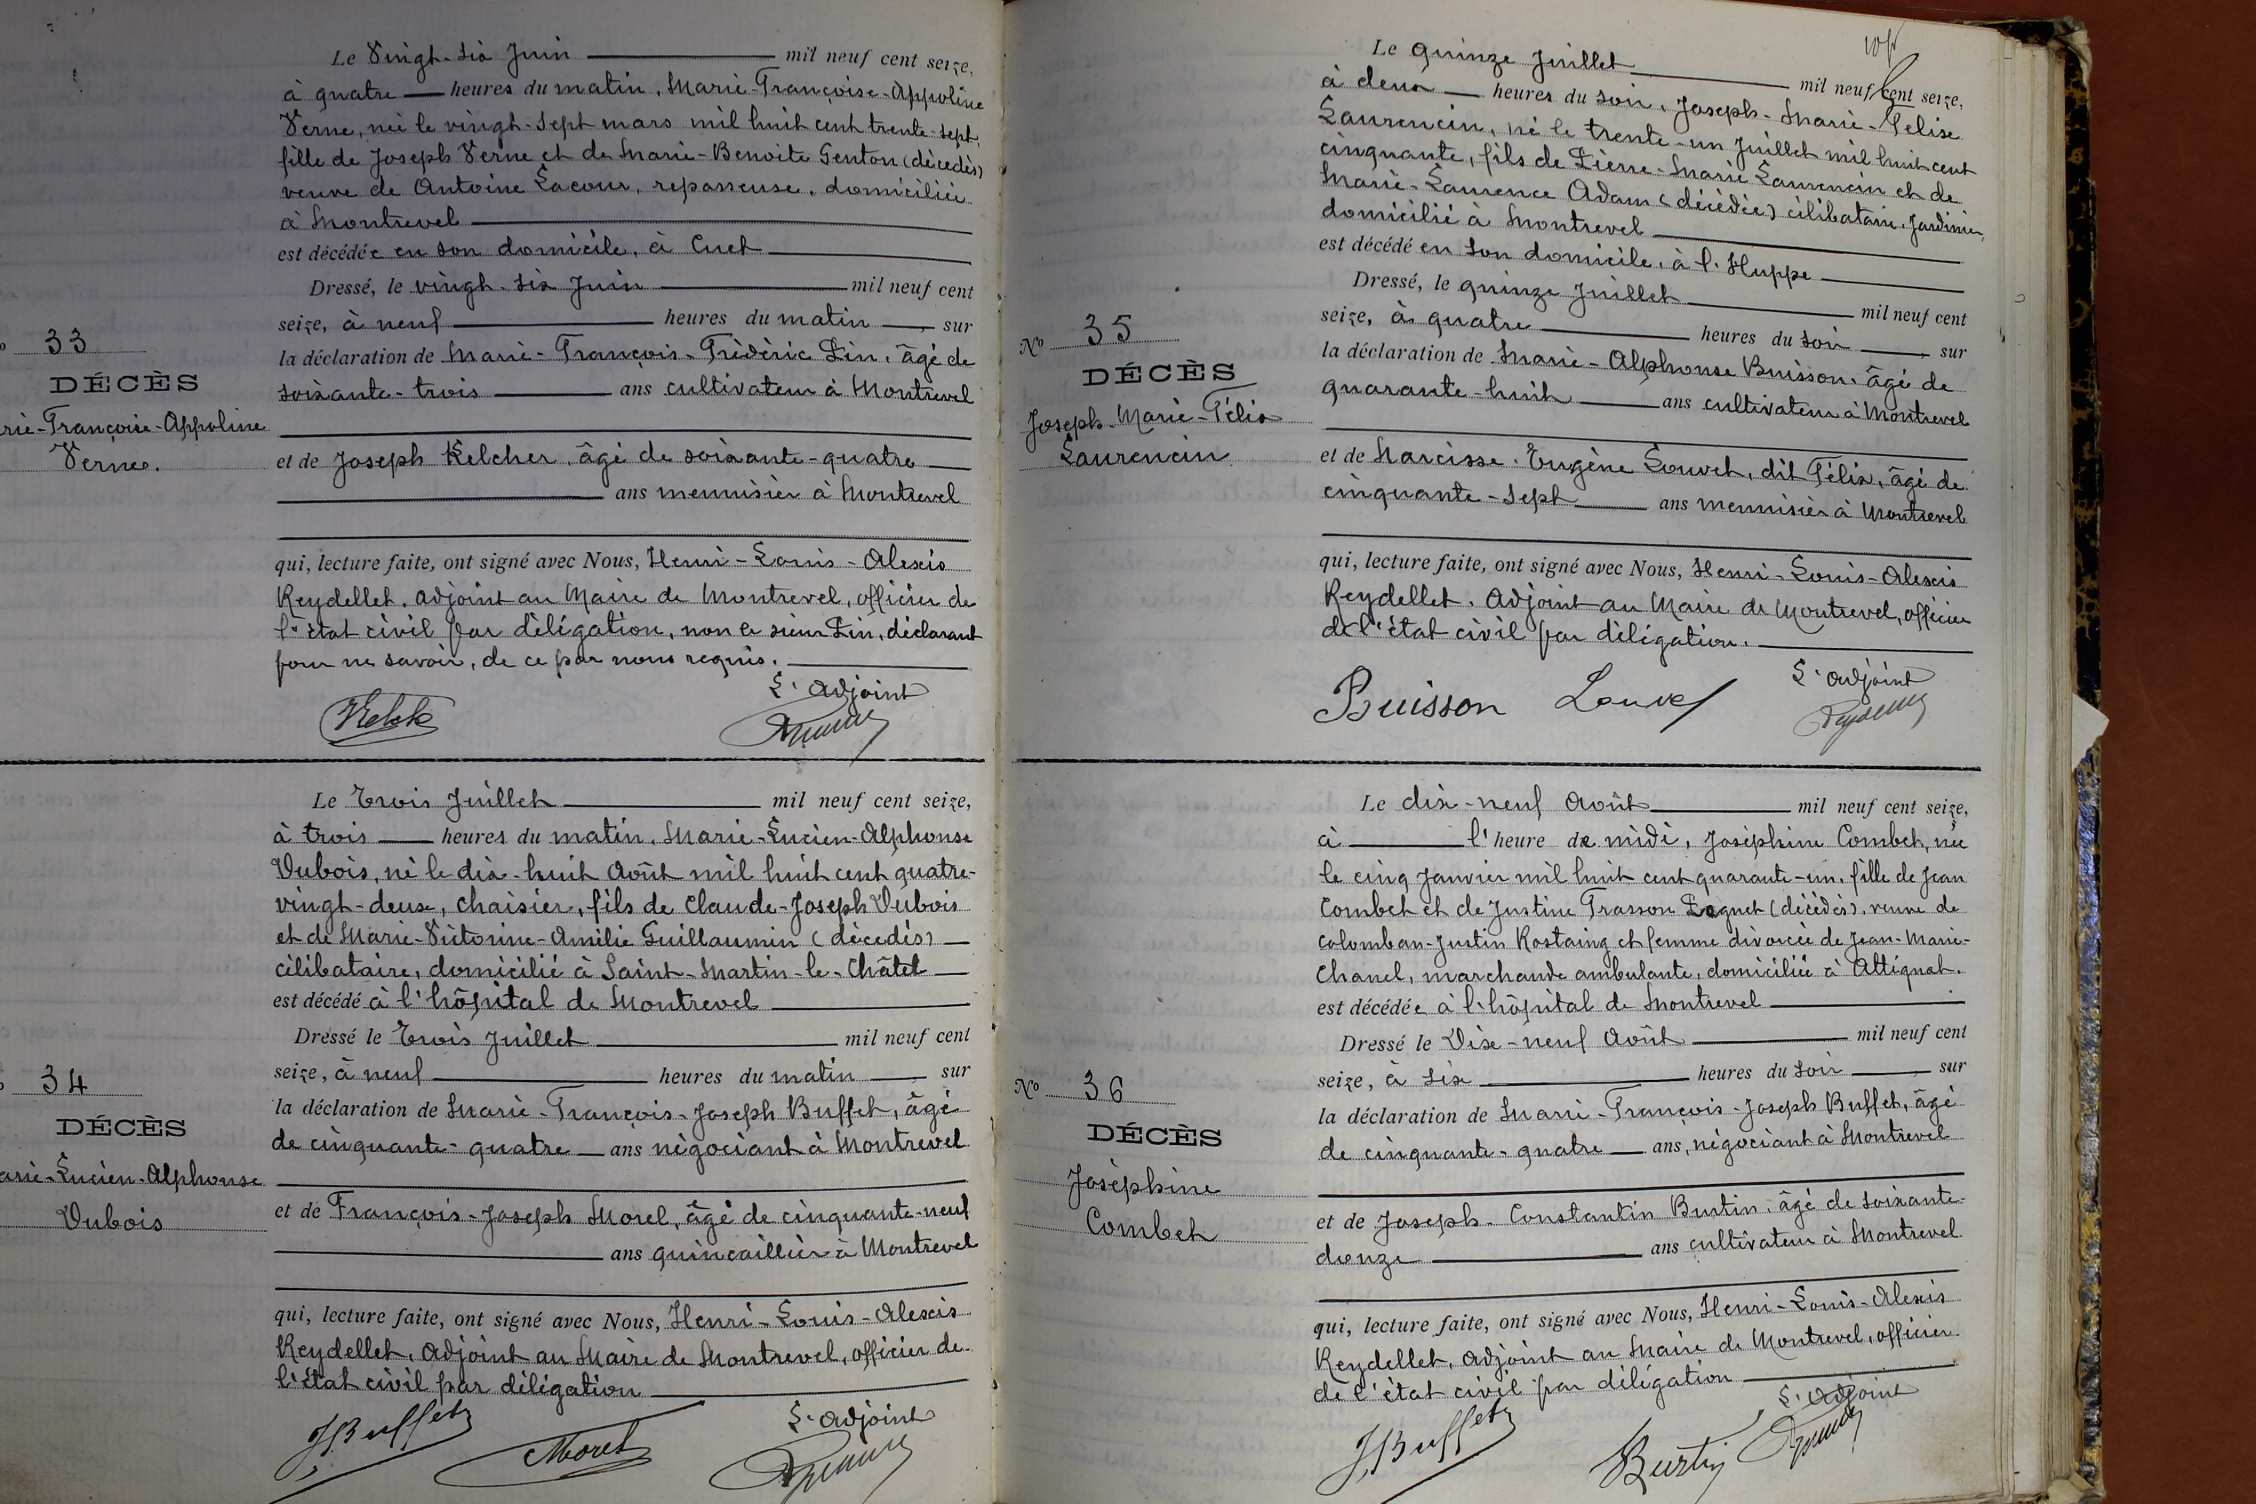 Le Vingt-six Juin mil neuf cent seize,
à quatre heures du matin, Marie-Françoise-Appoline
Verne, née le vingt-sept mars mil huit cent trente-sept,
fille de Joseph Verne et de Marie-Benoite Genton (décedés)
veuve de Antoine Lacour, repasseuse, domiciliée
à Montrevel
est décédée en son domicile, à Cuet
Dressé, le vingt-six Juin mil neuf cent
seize, à neuf heures du matin, sur
la déclaration de Marie-François-Frédéric Pin, âgé de
soixante-trois ans cultivateur à Montrevel
et de Joseph Kelcher, âgé de soixante-quatre
ans menuisier à Montrevel
qui, lecture faite, ont signé avec Nous, Henri-Louis-Alexis
Reydellet, adjoint au Maire de Montrevel, officier de
l'état civil par délégation, non le sieur Pin, déclarant
pour ne savoir, de ce par nous requis.
L'adjoint
33
DÉCÈS
rie-Françoise-Appoline
Verne.
Le Trois Juillet mil neuf cent seize,
à trois heures du matin, Marie-Lucien-Alphonse
Dubois, né le dix-huit Août mil huit cent quatre-
vingt-deux, chaisier, fils de Claude-Joseph Dubois
et de Marie-Victorine-Amélie Guillaumin (décedés)
célibataire, domicilié à Saint-Martin-le-Châtel
est décédé à l'hôpital de Montrevel
Dressé le Trois Juillet mil neuf cent
seize, à neuf heures du matin, sur
la déclaration de Marie-François-Joseph Buffet, âgé
de cinquante-quatre ans négociant à Montrevel
et de François-Joseph Morel, âgé de cinquante-neuf
ans quincaillier à Montrevel
qui, lecture faite, ont signé avec Nous, Henri-Louis-Alexis
Reydellet, adjoint au Maire de Montrevel, officier de
l'état civil par délégation
L'adjoint
J. Buffet
Morel
34
DÉCÈS
arie-Lucien-Alphonse
Dubois
Le quinze Juillet mil neuf cent seize,
à deux heures du soir, Joseph-Marie-Félise
Laurencin, né le trente-un Juillet mil huit cent
cinquante, fils de Pierre-Marie Laurencin et de
Marie-Laurence Adam (décédée) célibataire, Jardinier,
domicilié à Montrevel
est décédé en son domicile, à l'Huppe
Dressé, le quinze Juillet mil neuf cent
seize, à quatre heures du soir, sur
la déclaration de Marie-Alphonse Buisson, âgé de
quarante-huit ans cultivateur à Montrevel
et de Narcisse-Eugène Louvet, dit Félix, âgé de
cinquante-sept ans menuisier à Montrevel
qui, lecture faite, ont signé avec Nous, Henri-Louis-Alexis
Reydellet, adjoint au Maire de Montrevel, officier
de l'état civil par délégation.
L'adjoint
Buisson Louvet Reydellet
No 35
DÉCÈS
Joseph-Marie-Félix
Laurencin
Le dix-neuf Août mil neuf cent seize,
à l'heure de midi, Joséphine Combet, née
le cinq Janvier mil huit cent quarante-un, fille de Jean
Combet et de Justine Frasson Loguet (décédés), veuve de
Colomban-Justin Rostaing et femme divorcée de Jean-Marie-
Chanel, marchande ambulante, domiciliée à Attignat.
est décédée à l'hôpital de Montrevel
Dressé le Dix-neuf Août mil neuf cent
seize, à six heures du soir, sur
la déclaration de Marie-François-Joseph Buffet, âgé
de cinquante-quatre ans, négociant à Montrevel
et de Joseph-Constantin Burtin, âgé de soixante-
douze ans cultivateur à Montrevel
qui, lecture faite, ont signé avec Nous, Henri-Louis-Alexis
Reydellet, adjoint au Maire de Montrevel, officier
de l'état civil par délégation
L'adjoint
J. Buffet
Burtin
No 36
DÉCÈS
Joséphine
Combet